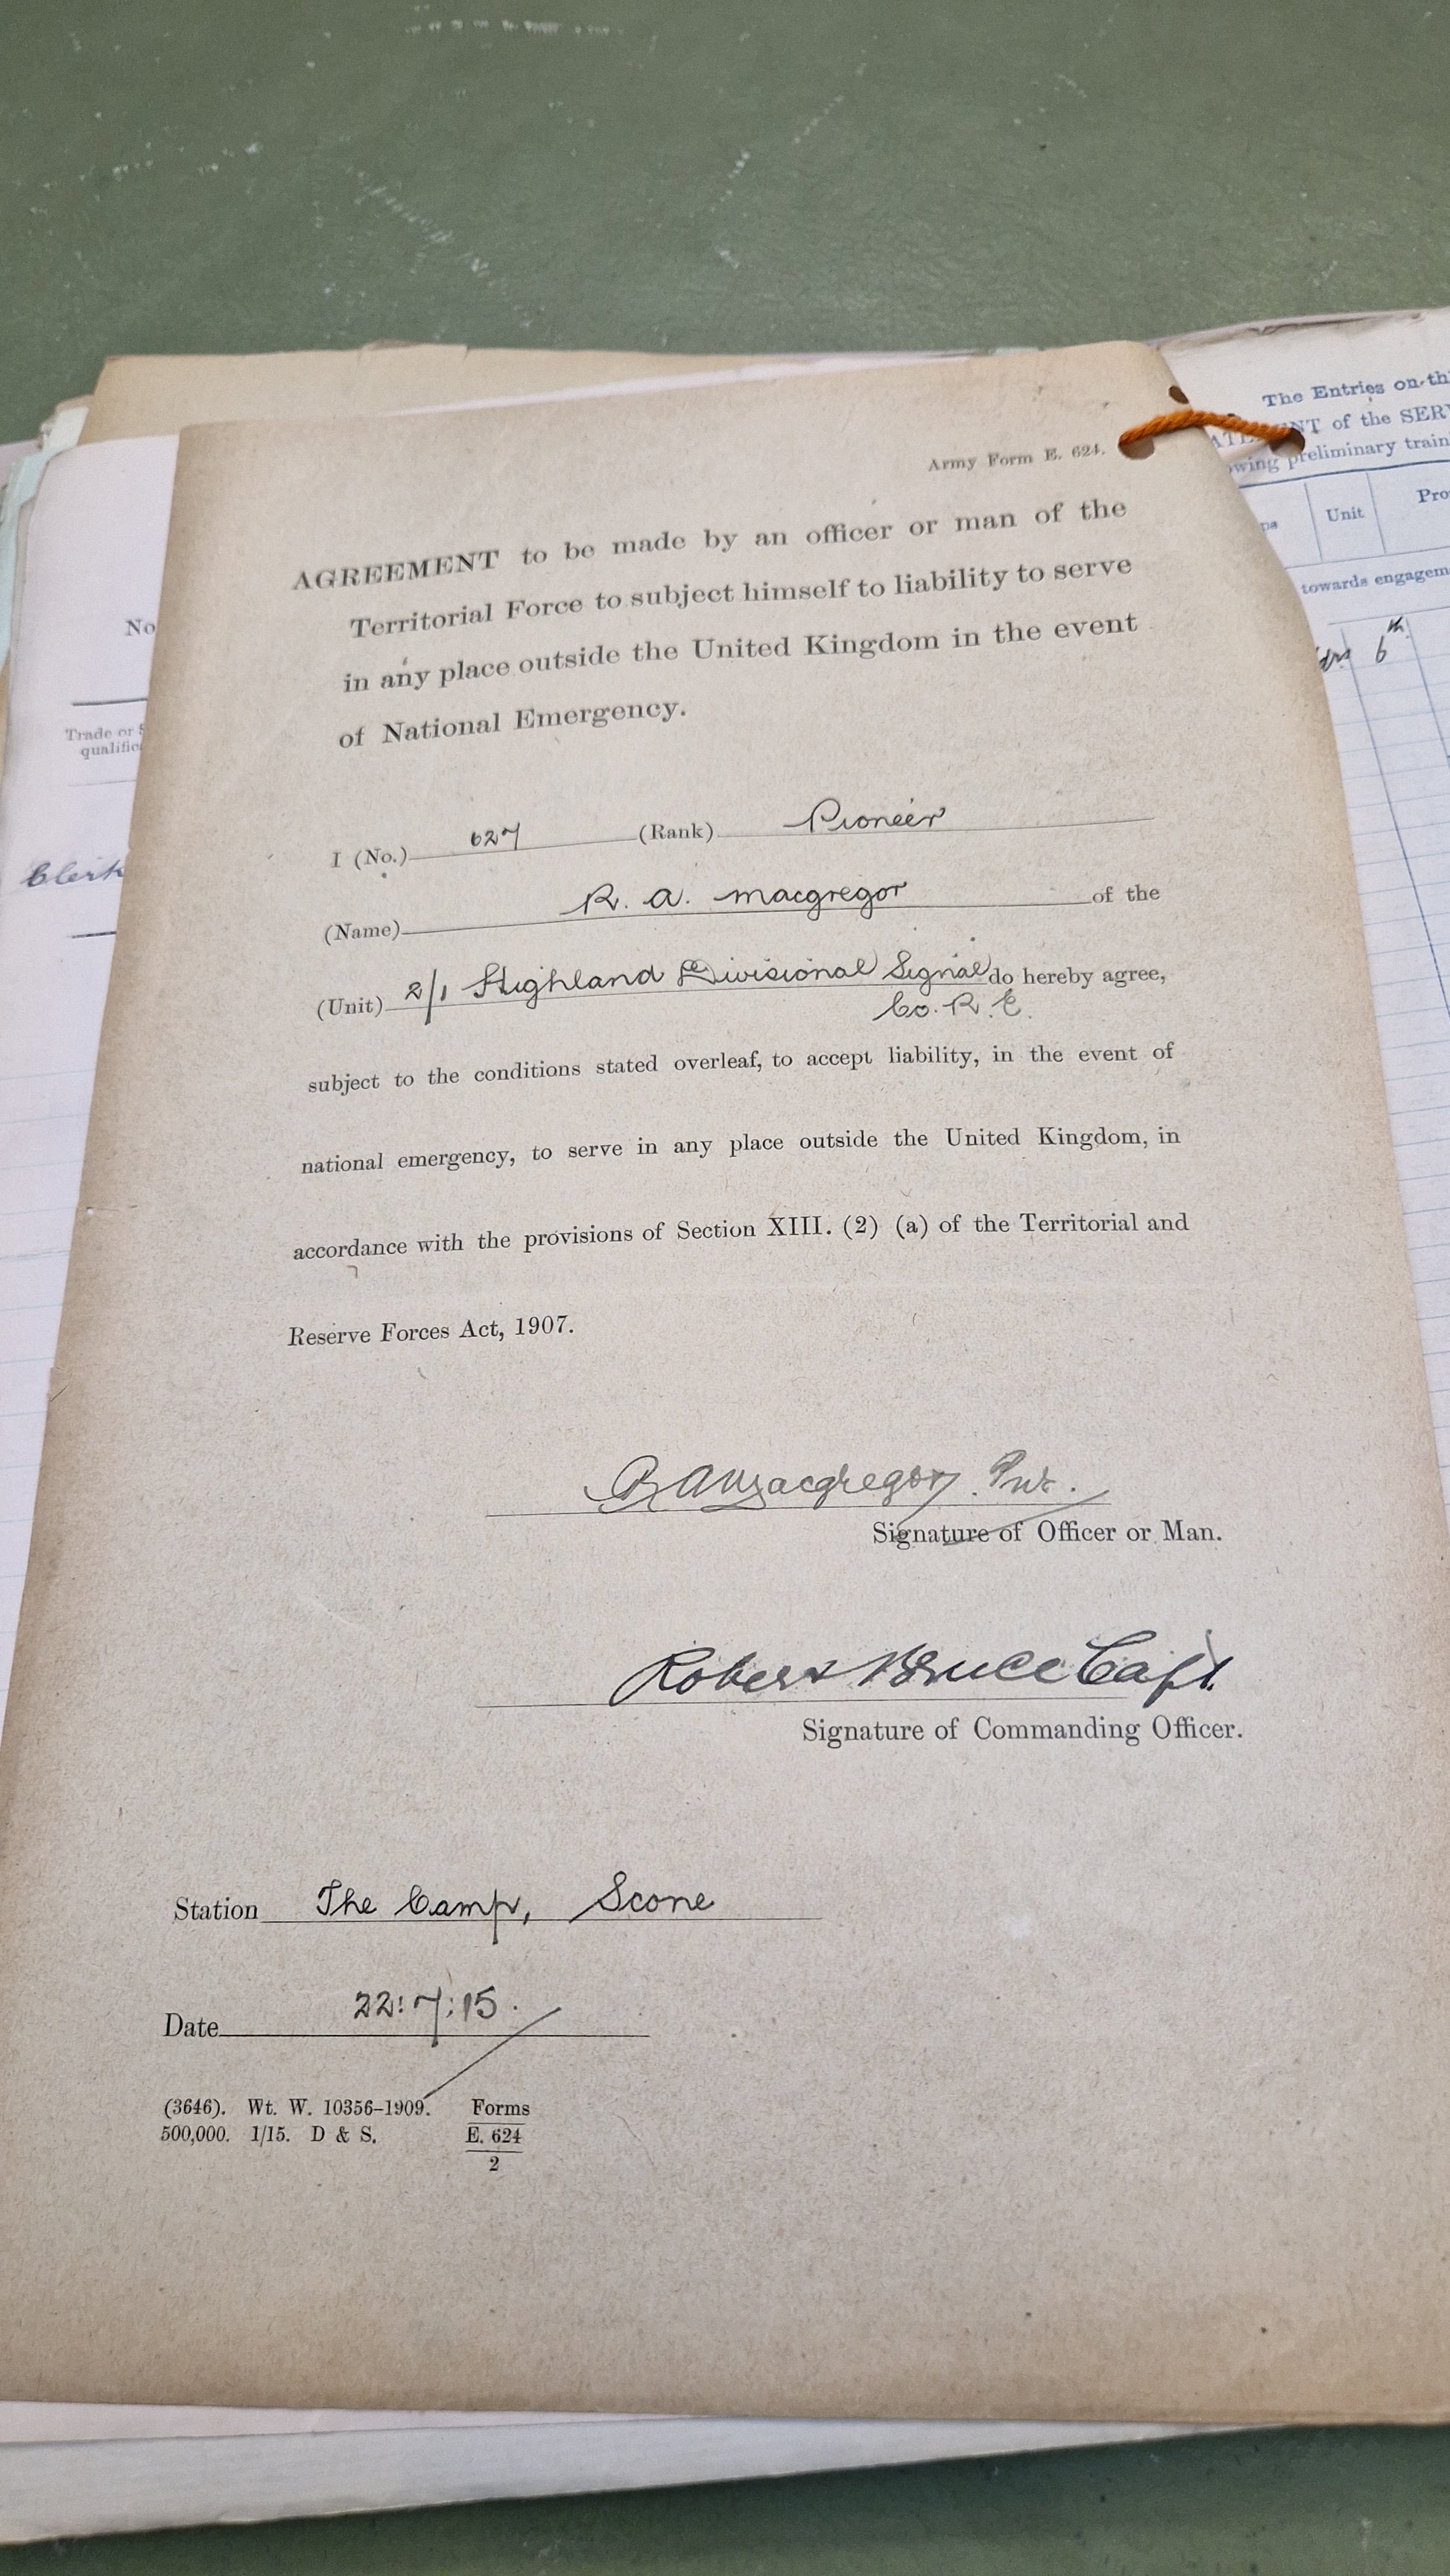 Army Form E. 624.
AGREEMENT to be made by an officer or man of the
Territorial Force to subject himself to liability to serve
in any place outside the United Kingdom in the event
of National Emergency.
I (No.) 627 (Rank) Pioneer
(Name) R. A. Macgregor of the
(Unit) 2/1 Highland Divisional Signal do hereby agree,
Co. R.E.
subject to the conditions stated overleaf, to accept liability, in the event of
national emergency, to serve in any place outside the United Kingdom, in
accordance with the provisions of Section XIII. (2) (a) of the Territorial and
Reserve Forces Act, 1907.
R A Macgregor. Pnr.
Signature of Officer or Man.
Robert Bruce Capt.
Signature of Commanding Officer.
Station The Camp, Scone
Date 22:7:15.
(3646). Wt. W. 10356–1909. Forms
500,000. 1/15. D & S. E. 624
2
No
Trade or
qualific
Clerk
The Entries on th
of the SER
owing preliminary train
Unit
Pro
towards engagem
6th